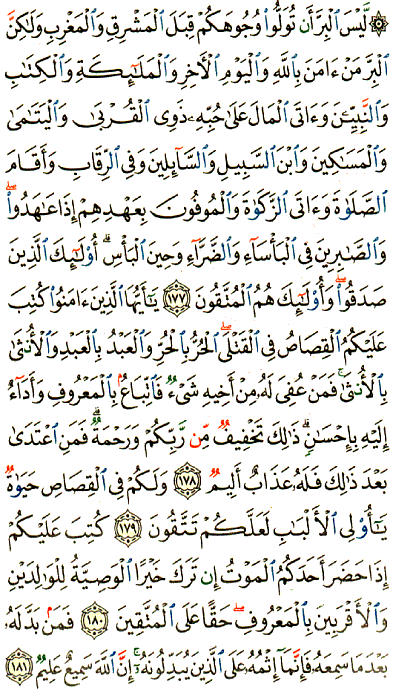 ۞ لَّيْسَ الْبِرَّ أَن تُوَلُّوا وُجُوهَكُمْ قِبَلَ الْمَشْرِقِ وَالْمَغْرِبِ وَلَٰكِنَّ
الْبِرَّ مَنْ ءَامَنَ بِاللَّهِ وَالْيَوْمِ الْأَخِرِ وَالْمَلَٰٓئِكَةِ وَالْكِتَٰبِ
وَالنَّبِيِّـۧنَ وَءَاتَى الْمَالَ عَلَىٰ حُبِّهِۦ ذَوِى الْقُرْبَىٰ وَالْيَتَٰمَىٰ
وَالْمَسَٰكِينَ وَابْنَ السَّبِيلِ وَالسَّآئِلِينَ وَفِى الرِّقَابِ وَأَقَامَ
الصَّلَوٰةَ وَءَاتَى الزَّكَوٰةَ وَالْمُوفُونَ بِعَهْدِهِمْ إِذَا عَٰهَدُوا ۖ
وَالصَّٰبِرِينَ فِى الْبَأْسَآءِ وَالضَّرَّآءِ وَحِينَ الْبَأْسِ ۗ أُولَٰٓئِكَ الَّذِينَ
صَدَقُوا ۖ وَأُولَٰٓئِكَ هُمُ الْمُتَّقُونَ ١٧٧ يَٰٓأَيُّهَا الَّذِينَ ءَامَنُوا كُتِبَ
عَلَيْكُمُ الْقِصَاصُ فِى الْقَتْلَى ۖ الْحُرُّ بِالْحُرِّ وَالْعَبْدُ بِالْعَبْدِ وَالْأُنثَىٰ
بِالْأُنثَىٰ ۚ فَمَنْ عُفِىَ لَهُۥ مِنْ أَخِيهِ شَىْءٌ فَاتِّبَاعٌۢ بِالْمَعْرُوفِ وَأَدَآءٌ
إِلَيْهِ بِإِحْسَٰنٍ ۗ ذَٰلِكَ تَخْفِيفٌ مِّن رَّبِّكُمْ وَرَحْمَةٌ ۗ فَمَنِ اعْتَدَىٰ
بَعْدَ ذَٰلِكَ فَلَهُۥ عَذَابٌ أَلِيمٌ ١٧٨ وَلَكُمْ فِى الْقِصَاصِ حَيَوٰةٌ
يَٰٓأُولِى الْأَلْبَٰبِ لَعَلَّكُمْ تَتَّقُونَ ١٧٩ كُتِبَ عَلَيْكُمْ
إِذَا حَضَرَ أَحَدَكُمُ الْمَوْتُ إِن تَرَكَ خَيْرًا الْوَصِيَّةُ لِلْوَٰلِدَيْنِ
وَالْأَقْرَبِينَ بِالْمَعْرُوفِ ۖ حَقًّا عَلَى الْمُتَّقِينَ ١٨٠ فَمَنۢ بَدَّلَهُۥ
بَعْدَ مَا سَمِعَهُۥ فَإِنَّمَآ إِثْمُهُۥ عَلَى الَّذِينَ يُبَدِّلُونَهُۥٓ ۚ إِنَّ اللَّهَ سَمِيعٌ عَلِيمٌ ١٨١